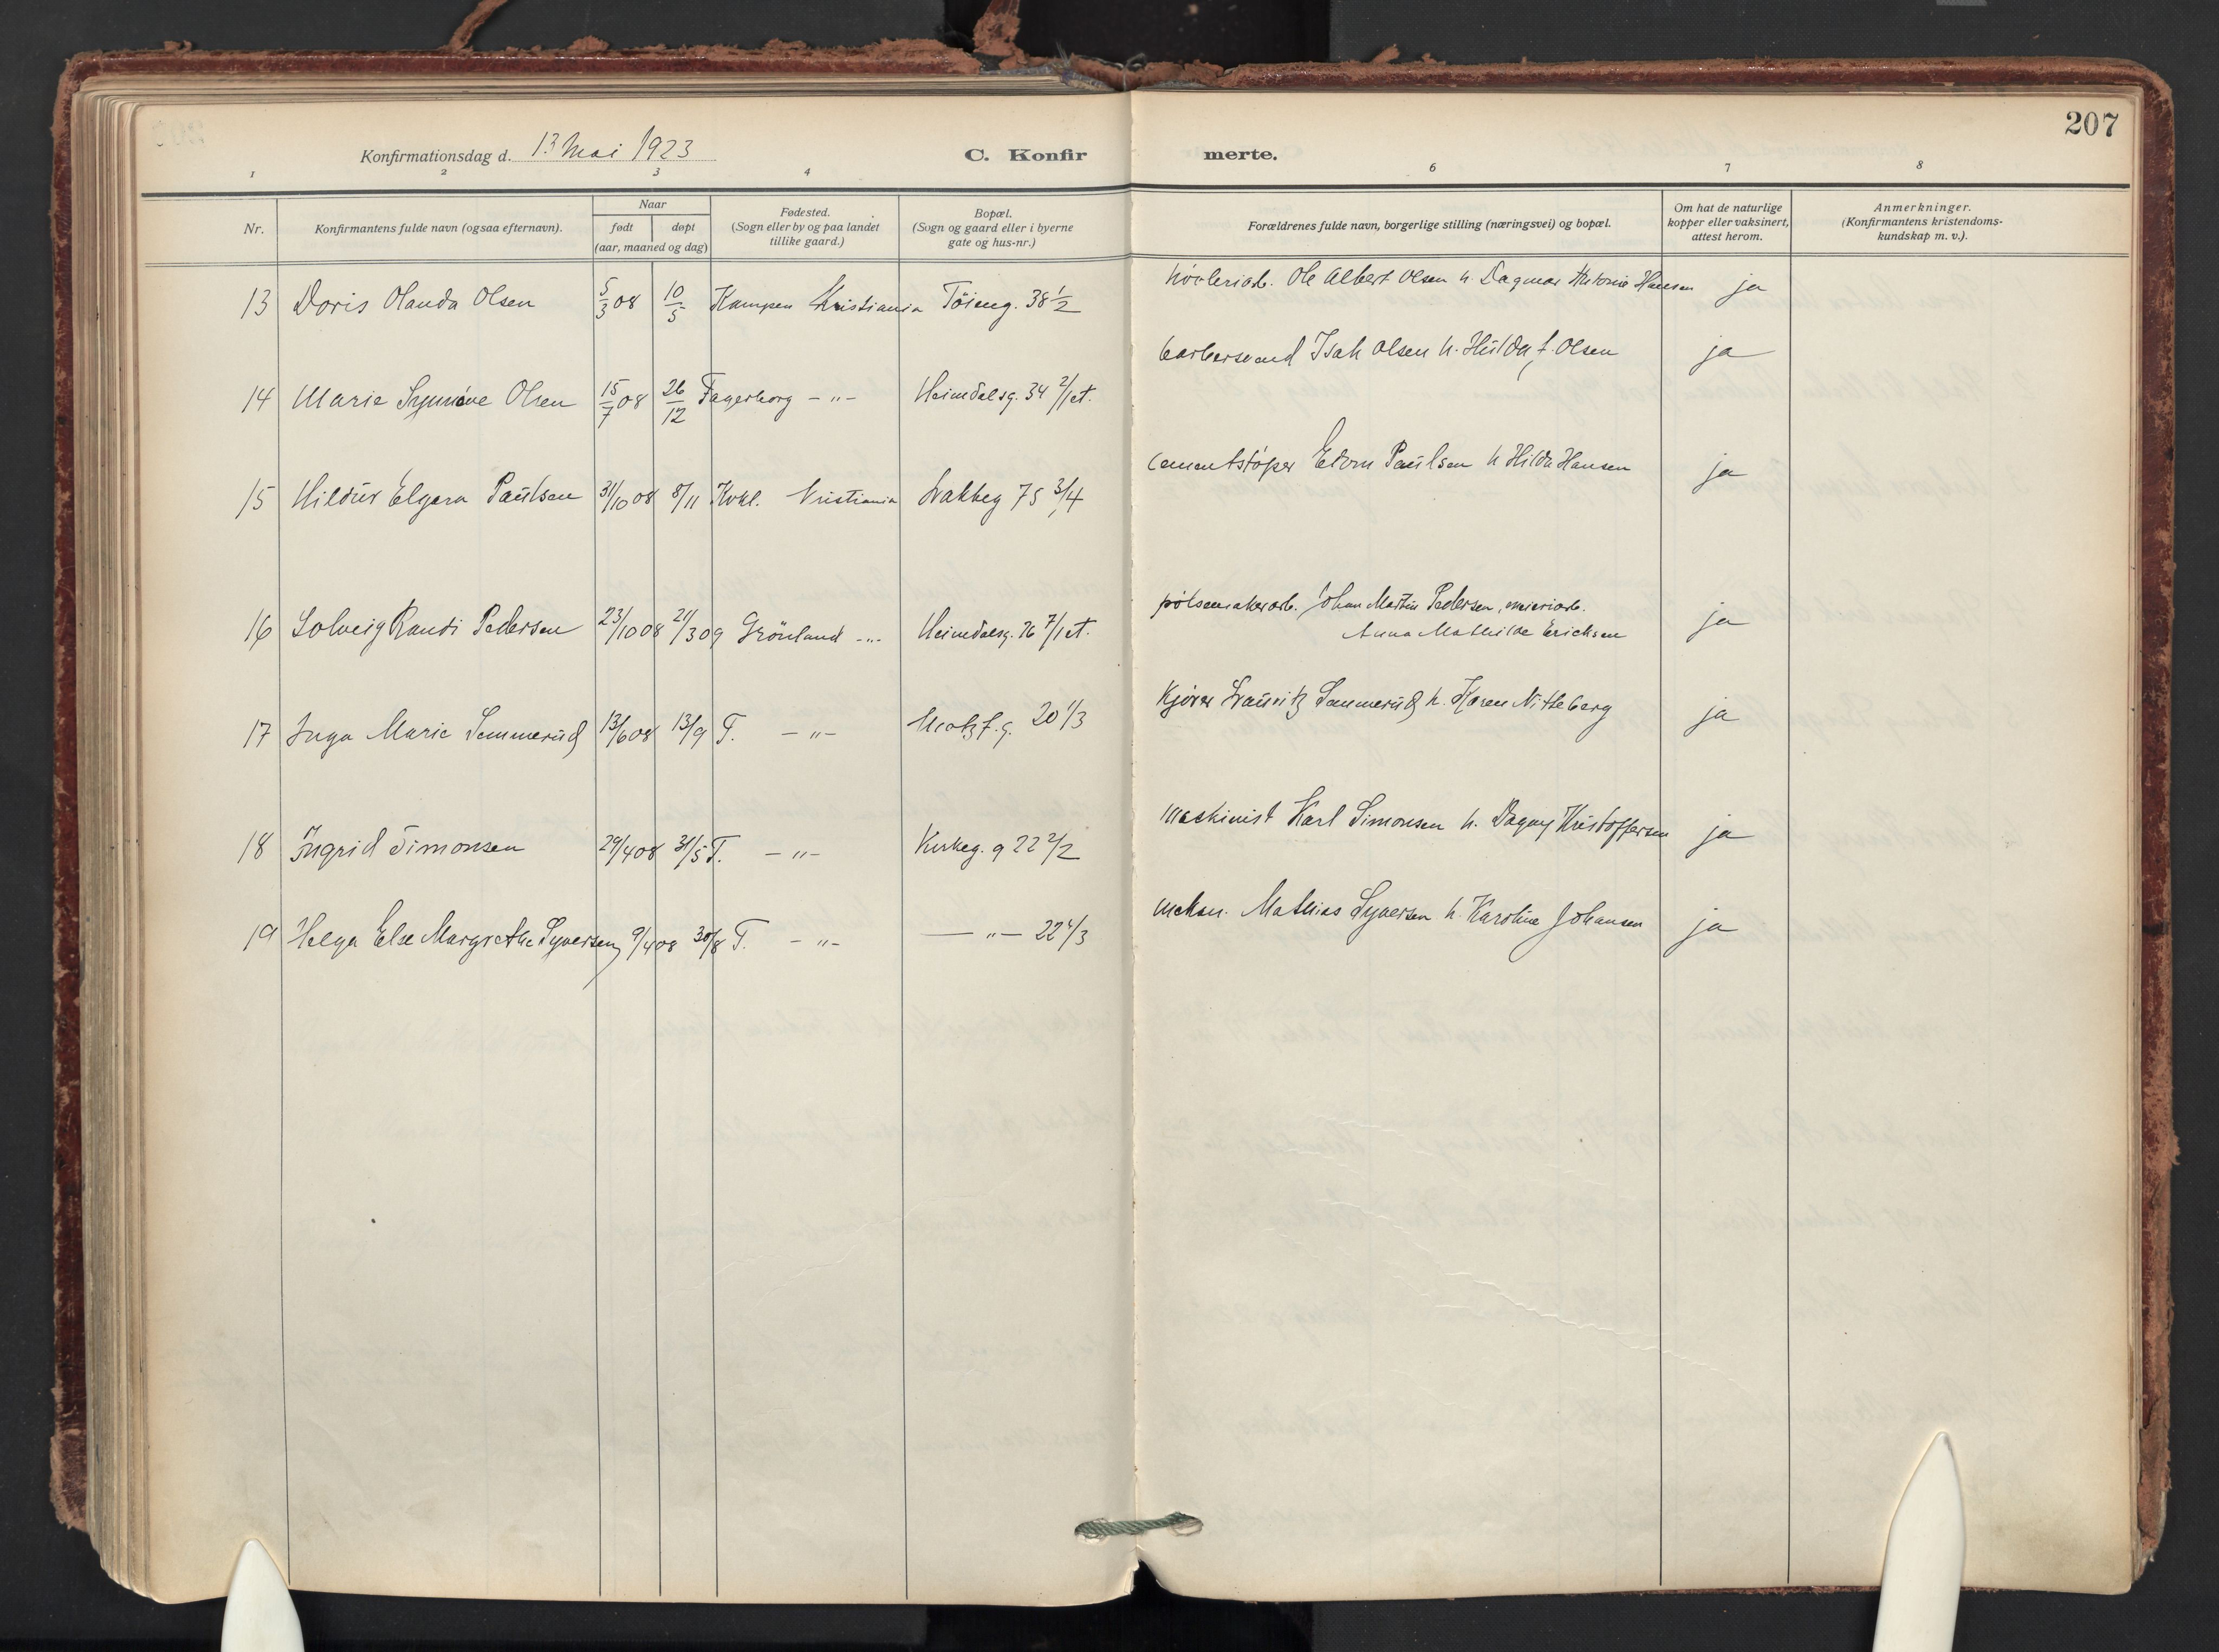 207
Konfirmationsdag d. 13 Mai 1923
C. Konfirmerte.
1 2 3 4 6 7 8
Nr.
Konfirmantens fulde navn (ogsaa efternavn).
Naar
født døpt
(aar, maaned og dag)
Fødested.
(Sogn eller by og paa landet
tillike gaard.)
Bopæl.
(Sogn og gaard eller i byerne
gate og hus-nr.)
Forældrenes fulde navn, borgerlige stilling (næringsvei) og bopæl.
Om hat de naturlige
kopper eller vaksinert,
attest herom.
Anmerkninger.
(Konfirmantens kristendoms-
kundskap m. v.).
13 Doris Olanda Olsen 5/3 08 10/5 Kampen Kristiania Töieng. 38 1/2 hövleriarb. Ole Albert Olsen h. Dagmar Antonie Hansen ja
14 Marie Synnöve Olsen 15/7 08 26/12 Fagerborg -"- Heimdalsg. 34 2/1 et. barbersvend Isak Olsen h. Hilda f. Olsen ja
15 Hildur Elgera Paulsen 31/10 08 8/11 Kvkl. Kristiania Lakkeg 75 3/4 cementstöper Edvin Paulsen h Hilda Hansen ja
16 Solveig Randi Pedersen 23/10 08 21/3 09 Grönland -"- Heimdalsg. 76 7/1 et. pölsemakerarb. Johan Martin Pedersen, meieriarb.
Anna Mathilde Ericksen ja
17 Inga Marie Sommerud 13/6 08 13/9 T. -"- Motzf.g. 20 1/3 Kjörer Lauritz Sommerud h. Karen Nitteberg ja
18 Ingrid Simonsen 29/4 08 31/5 T. -"- Kirkeg. 9 22 2/2 maskinist Karl Simonsen h. Dagny Kristoffersen ja
19 Helga Else Margrethe Syversen 9/4 08 30/8 T. -"- -"- 22 4/3 Mathias Syversen h. Karoline Johansen ja